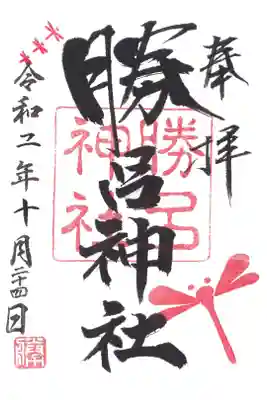 奉拝
勝呂神社
勝呂
神社
令和二年十月二十四日